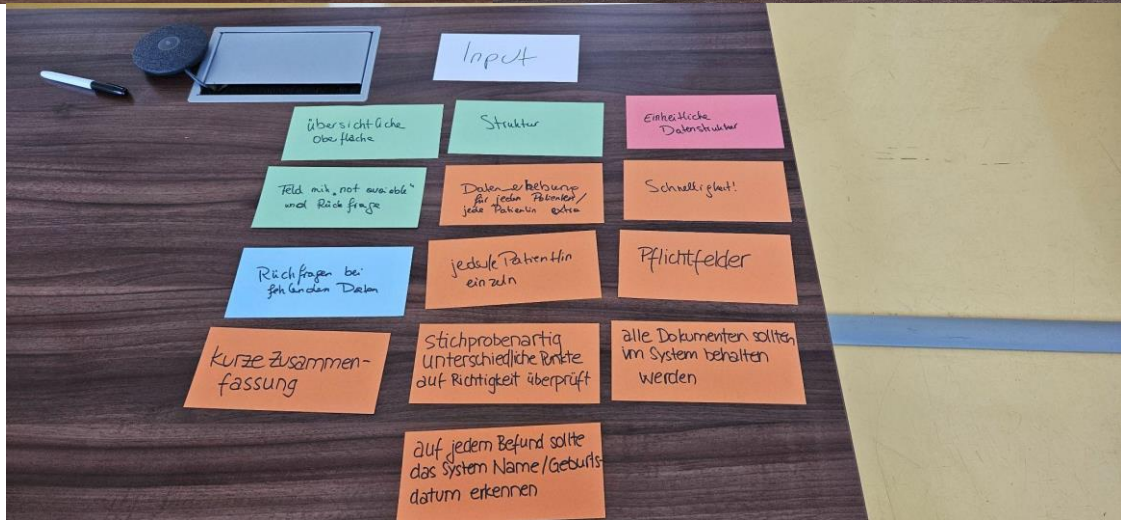 Input
übersichtliche
Oberfläche
Struktur
Einheitliche
Datenstruktur
Feld mit "not available"
und Rückfrage
Datenerhebung
für jeden Patienten/
jede Patientin extra
Schnelligkeit!
Rückfragen bei
fehlenden Daten
jede/r Patient/in
einzeln
Pflichtfelder
kurze Zusammen-
fassung
stichprobenartig
unterschiedliche Punkte
auf Richtigkeit überprüft
alle Dokumenten sollten
im System behalten
werden
auf jedem Befund sollte
das System Name/Geburts-
datum erkennen